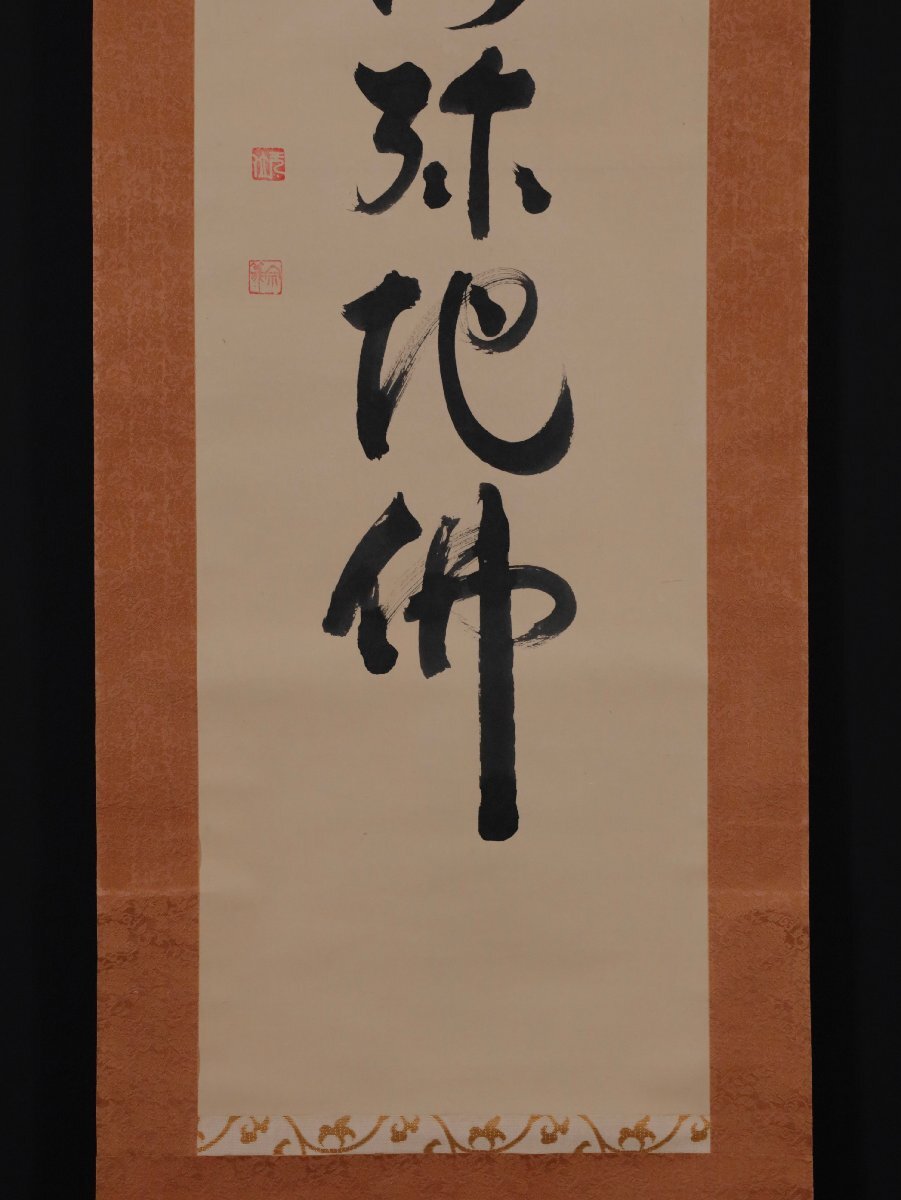 弥陀佛